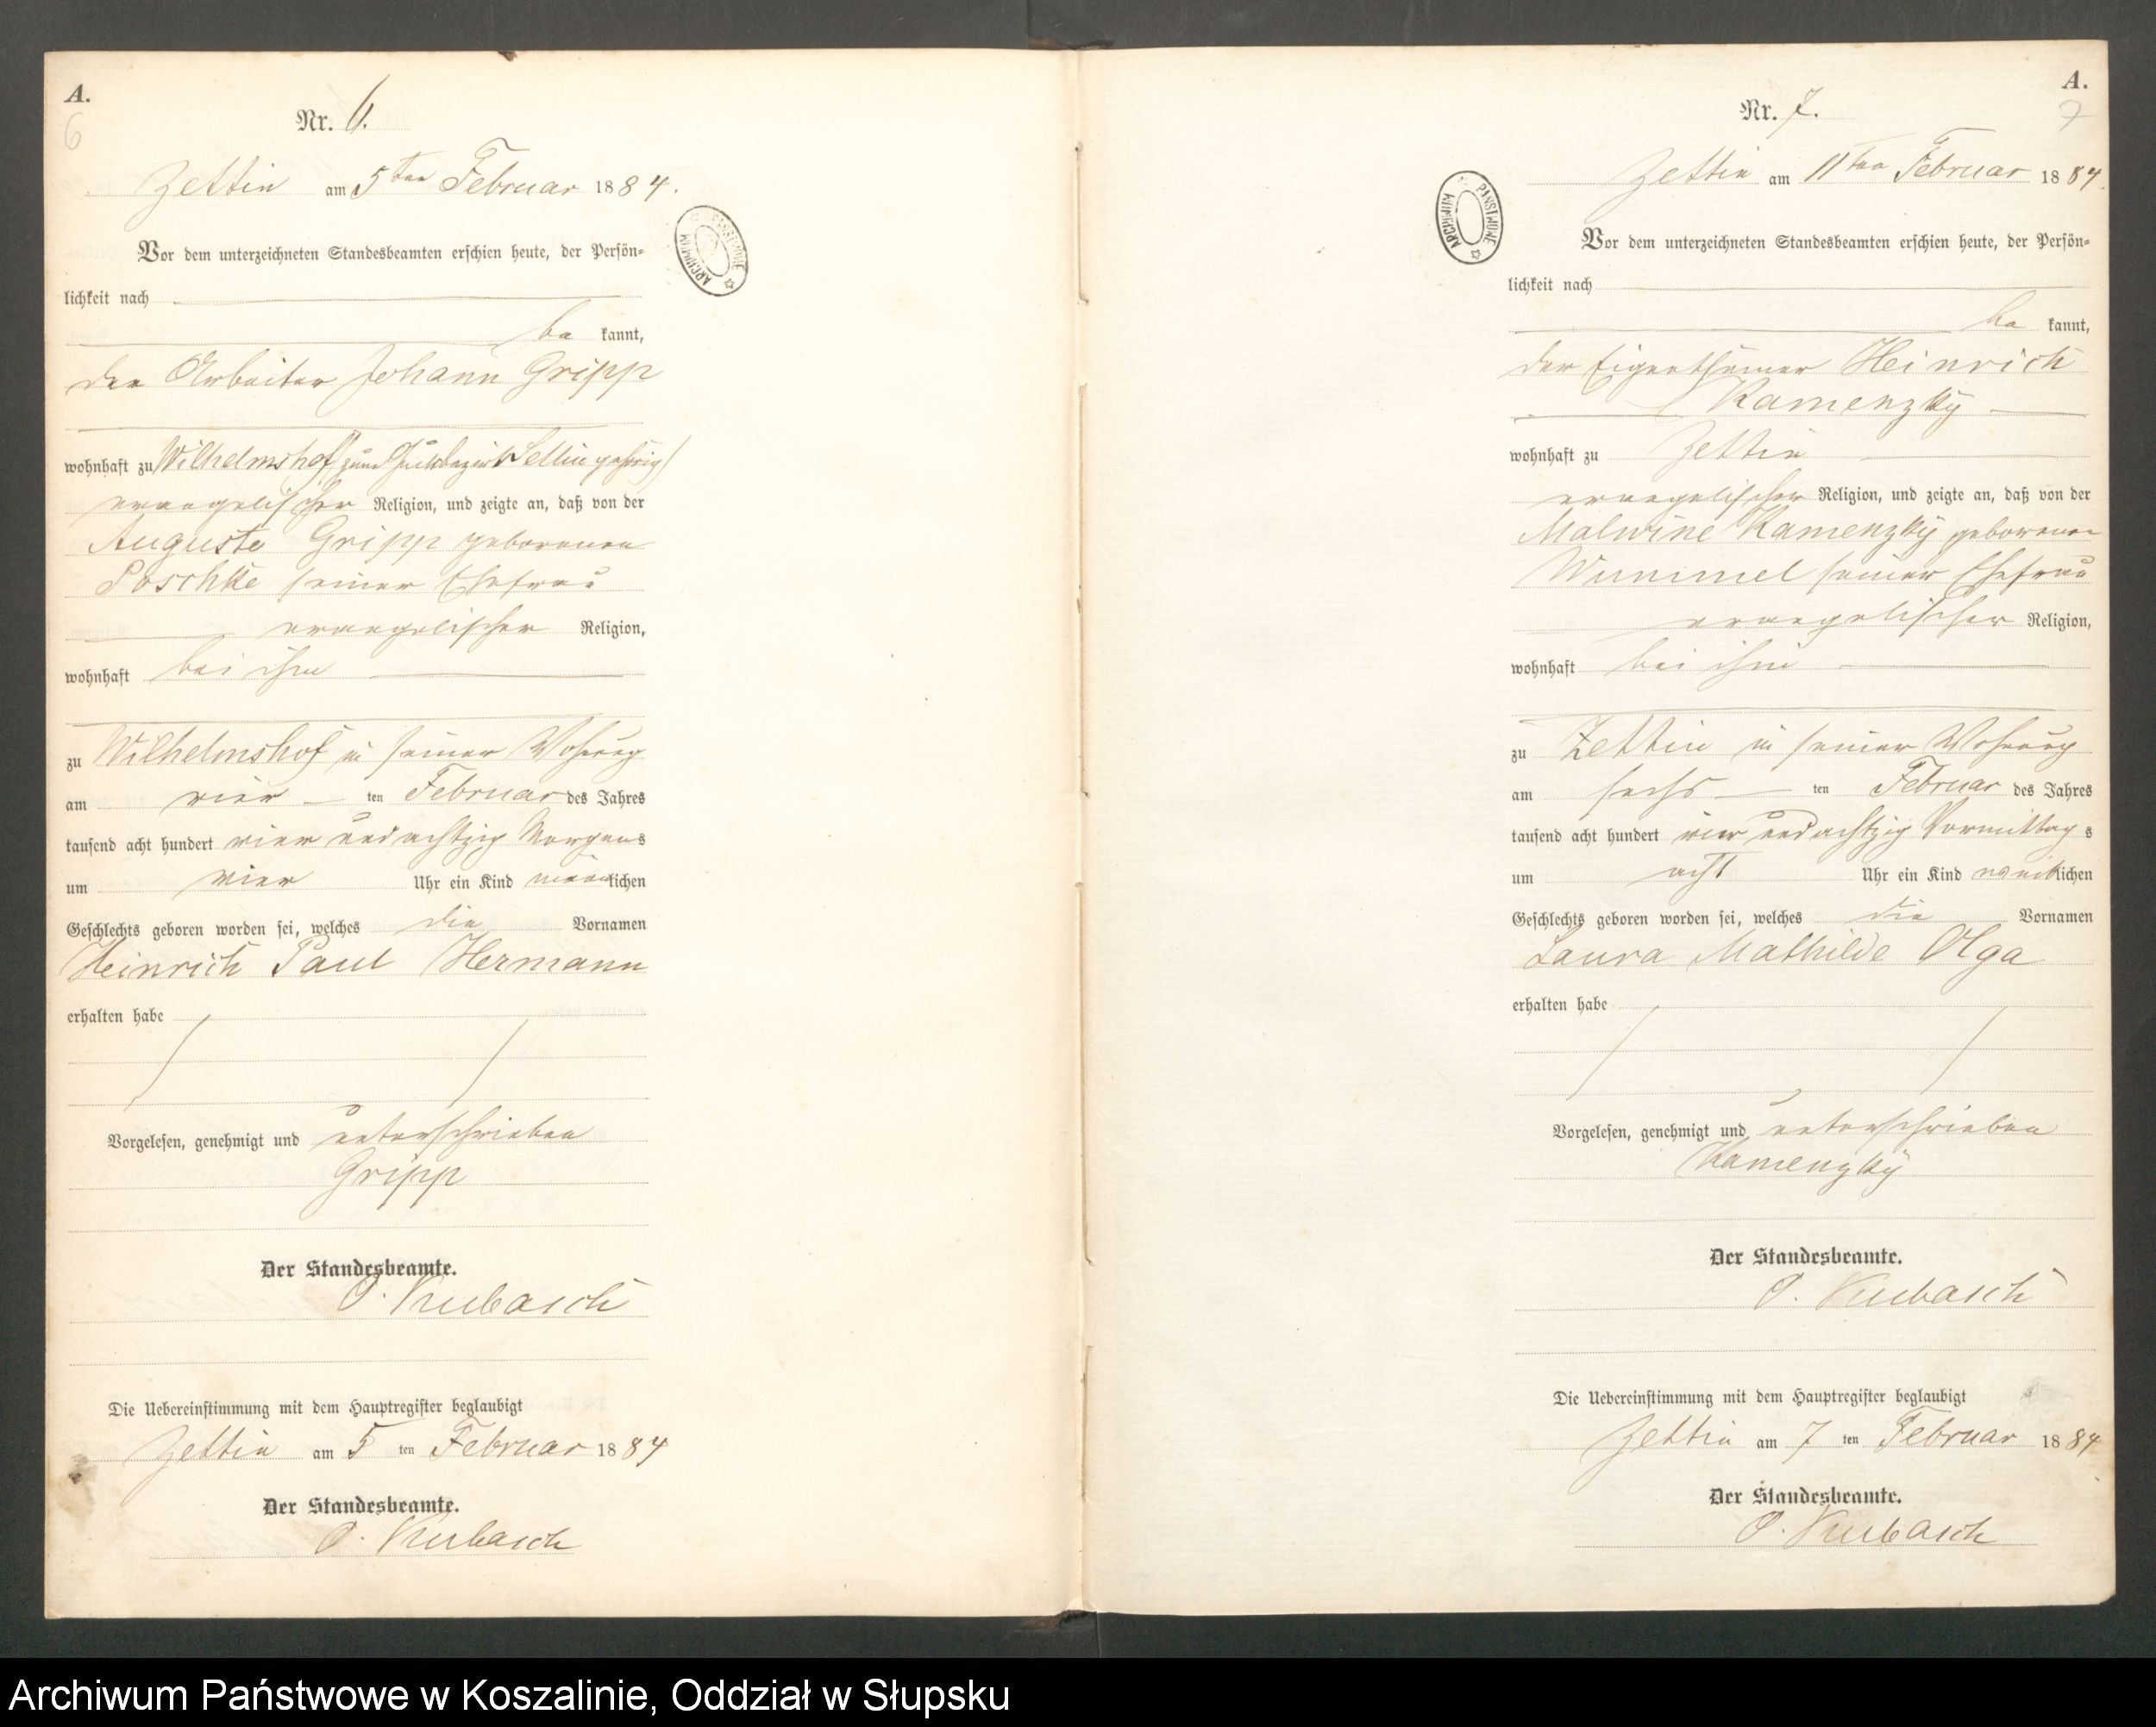 A.
6
Nr. 6.
Zettin am 5ten Februar 1884.
Vor dem unterzeichneten Standesbeamten erschien heute, der Persön-
lichkeit nach
be kannt,
der Arbeiter Johann Gripp
wohnhaft zu Wilhelmshof (zum Gutsbezirk Sellin gehörig)
evangelischer Religion, und zeigte an, daß von der
Auguste Gripp geborenen
Poschke seiner Ehefrau
evangelischer Religion,
wohnhaft bei ihm
zu Wilhelmshof in seiner Wohnung
am vier ten Februar des Jahres
tausend acht hundert vier und achtzig Morgens
um vier Uhr ein Kind männlichen
Geschlechts geboren worden sei, welches die Vornamen
Heinrich Paul Hermann
erhalten habe
Vorgelesen, genehmigt und unterschrieben
Gripp
Der Standesbeamte.
O. Kubasch
Die Uebereinstimmung mit dem Hauptregister beglaubigt
Zettin am 5 ten Februar 1884
Der Standesbeamte.
O. Kubasch
ARCHIWUM PAŃSTWOWE
A.
7
Nr. 7.
Zettin am 11ten Februar 1884.
ARCHIWUM PAŃSTWOWE
Vor dem unterzeichneten Standesbeamten erschien heute, der Persön-
lichkeit nach
be kannt,
der Eigenthümer Heinrich
Kamenzky
wohnhaft zu Zettin
evangelischer Religion, und zeigte an, daß von der
Malwine Kamenzky geborenen
Wummel seiner Ehefrau
evangelischer Religion,
wohnhaft bei ihm
zu Zettin in seiner Wohnung
am sechs ten Februar des Jahres
tausend acht hundert vier und achtzig Vormittags
um acht Uhr ein Kind weiblichen
Geschlechts geboren worden sei, welches die Vornamen
Laura Mathilde Olga
erhalten habe
Vorgelesen, genehmigt und unterschrieben
Kamenzky
Der Standesbeamte.
O. Kubasch
Die Uebereinstimmung mit dem Hauptregister beglaubigt
Zettin am 7 ten Februar 1884
Der Standesbeamte.
O. Kubasch
Archiwum Państwowe w Koszalinie, Oddział w Słupsku